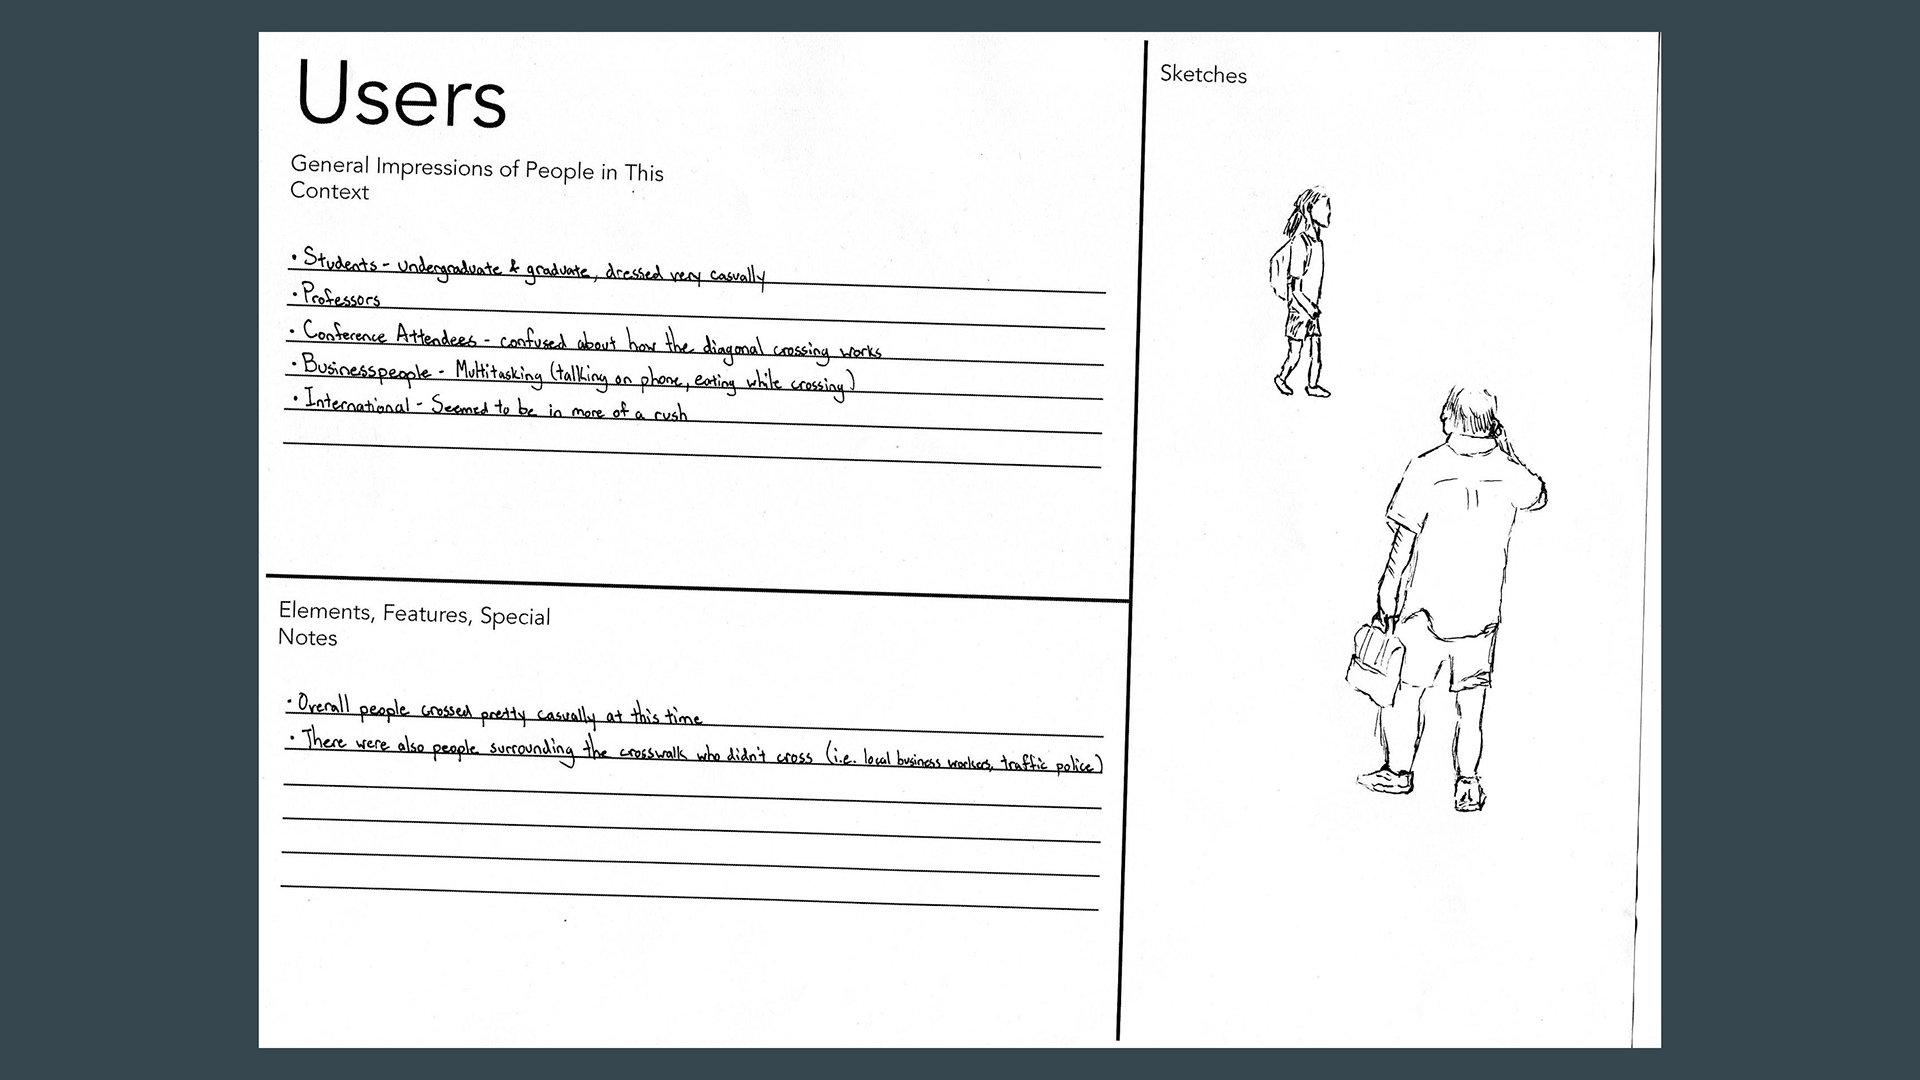 Users
General Impressions of People in This
Context
• Students - undergraduate & graduate, dressed very casually
• Professors
• Conference Attendees - confused about how the diagonal crossing works
• Businesspeople - Multitasking (talking on phone, eating while crossing)
• International - Seemed to be in more of a rush
Elements, Features, Special
Notes
• Overall people crossed pretty casually at this time
• There were also people surrounding the crosswalk who didn't cross (i.e. local business workers, traffic police)
Sketches